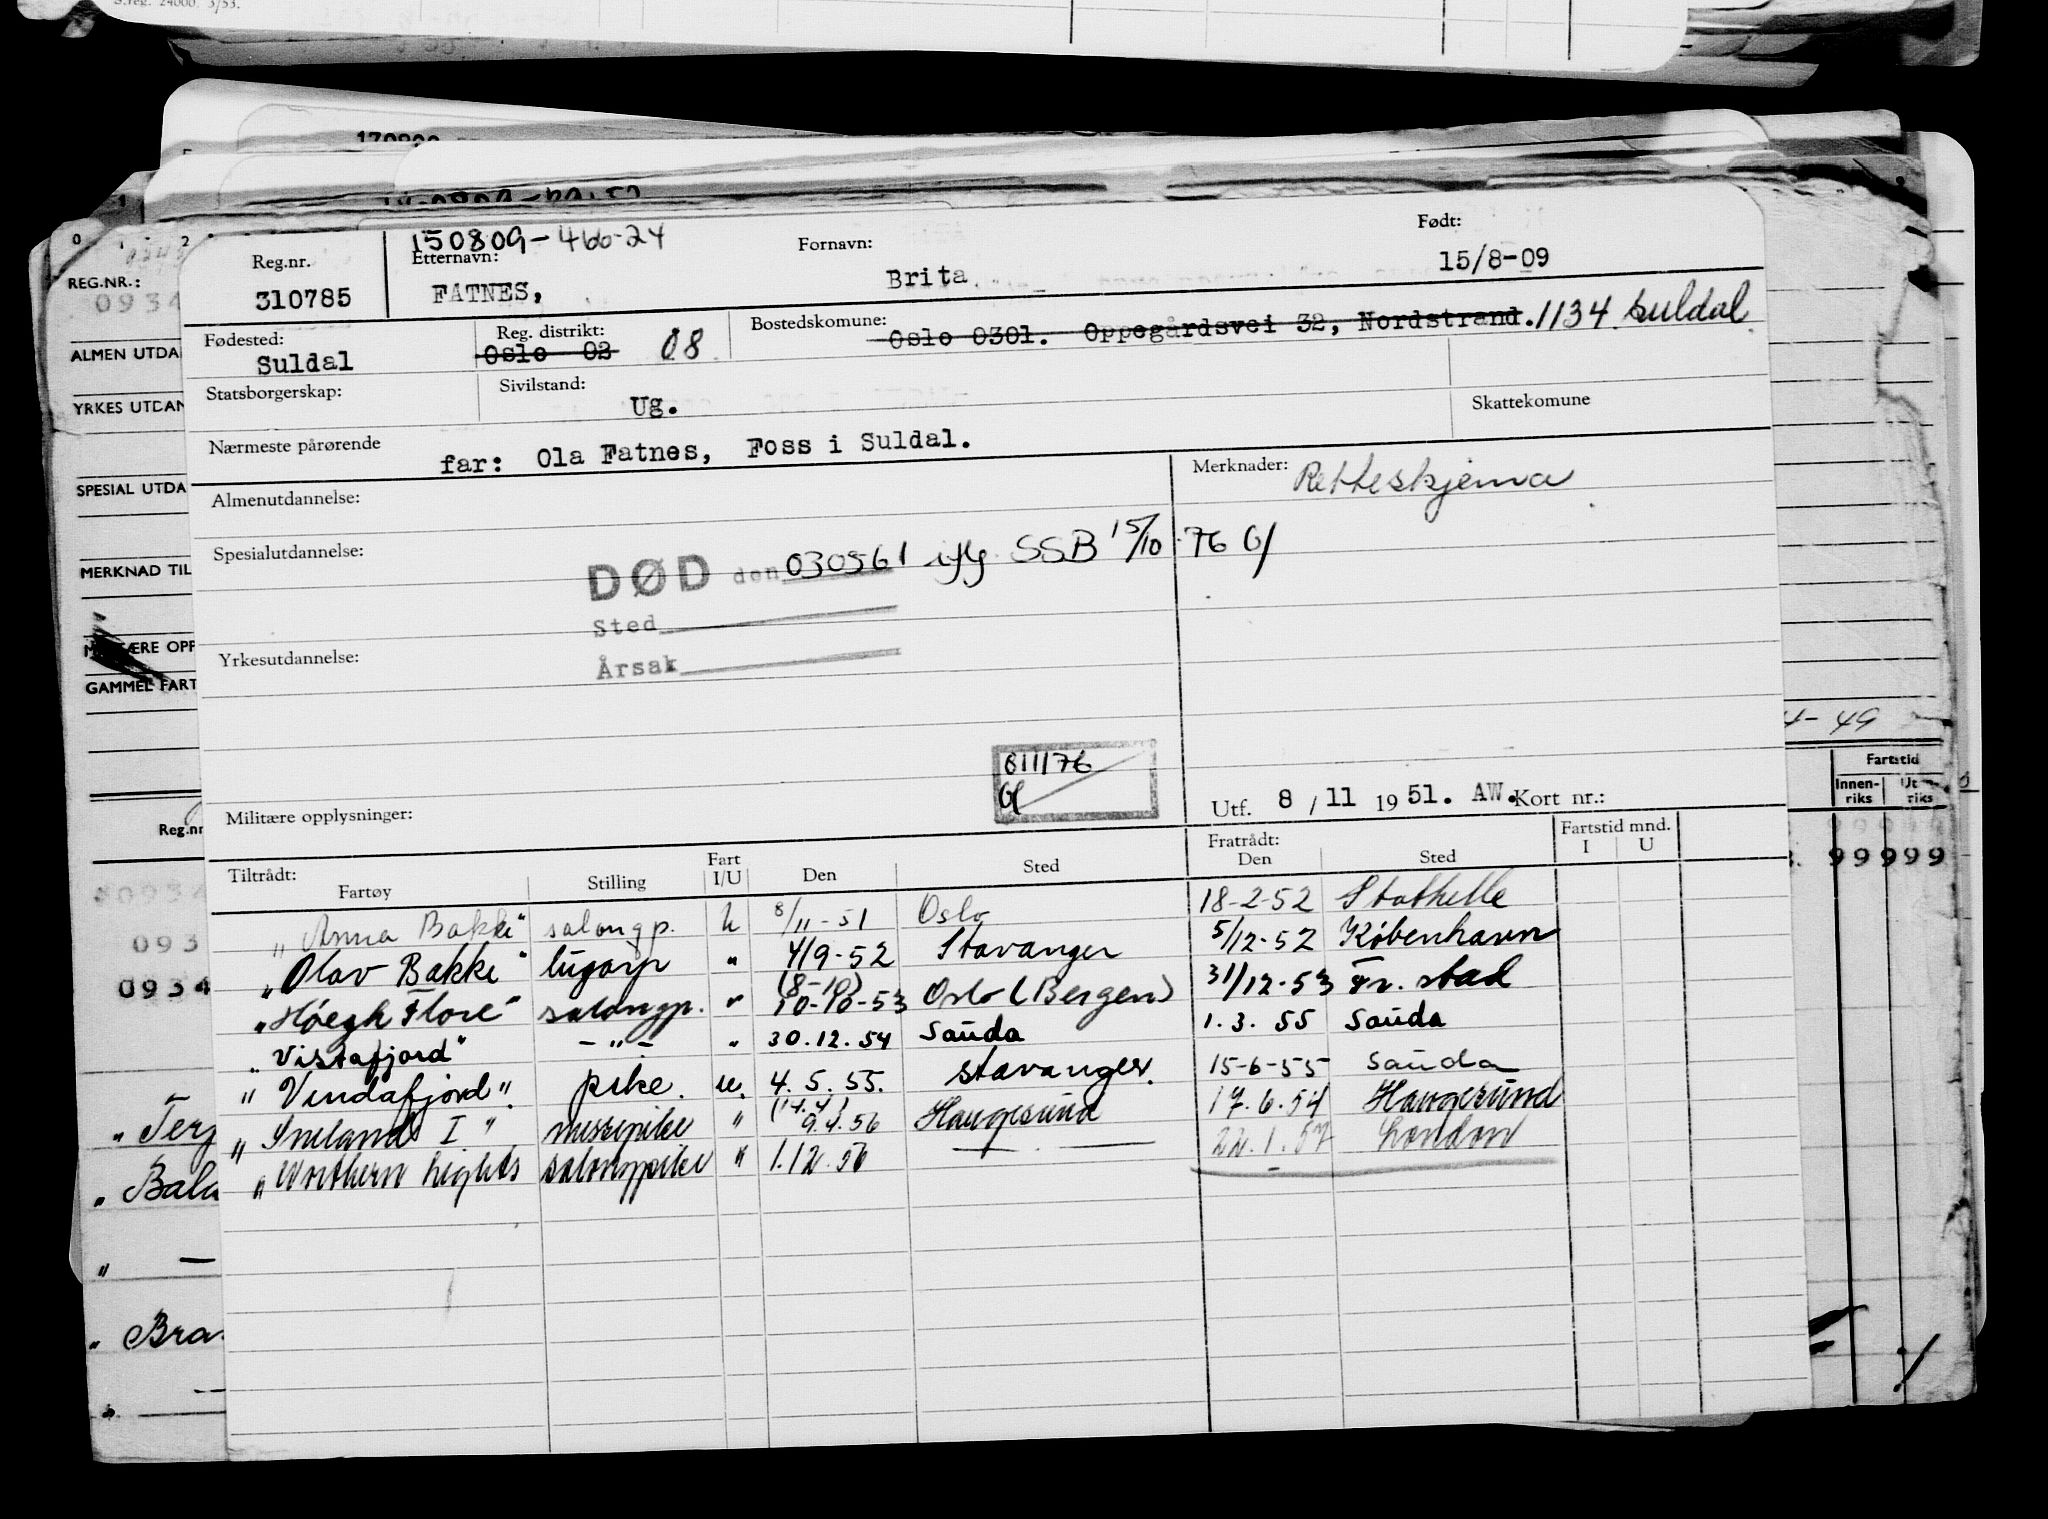 S.reg. 24000. 3/53.
170809
0 1 2
REG.NR.:
0934
ALMEN UTDA
YRKES UTDAN
SPESIAL UTDA
MERKNAD TIL
ÆRE OPP
GAMMEL FART
Reg.nr
0934
093
0934
„ Terg
„ Bala
„ —
„ Bra
4-49
Fartstid
Innen-riks Ut riks
99999
99999
150809-466-24
Reg.nr. Etternavn: Fornavn: Født:
310785 FATNES, Brita 15/8-09
Fødested: Reg. distrikt: Bostedskomune:
Suldal Oslo 02 08 Oslo 0301. Oppegårdsvei 32, Nordstrand. 1134 Suldal
Statsborgerskap: Sivilstand: Ug. Skattekomune
Nærmeste pårørende far: Ola Fatnes, Foss i Suldal.
Almenutdannelse: Merknader: Retteskjema
Spesialutdannelse:
DØD den 030561 iflg SSB 15/10 76 Gl
Sted
Yrkesutdannelse: Årsak
811176
Gl
Militære opplysninger: Utf. 8 / 11 1951. AW. Kort nr.:
Tiltrådt: Fratrådt: Fartstid mnd.
Fartøy Stilling Fart I/U Den Sted Den Sted I U
„Anna Bakke" salongp. U 8/11-51 Oslo 18-2-52 Stathelle
„Olav Bakke" lugarp " 4/9-52 Stavanger 5/12-52 København
„Høegh Flore" salongp. " (8-10) 10-10-53 Oslo (Bergen) 31/12-53 Fr. stad
„Vistafjord" -"- " 30.12.54 Sauda 1.3.55 Sauda
„Vindafjord". pike. u. 4.5.55. Stavanger. 15-6-55 Sauda
„ Imelands I" messepike " (14.4) 9.4.56 Haugesund 17.6.54 Haugesund
„Northern Lights salongpike " 1.12.56 — — 22.1.57 London